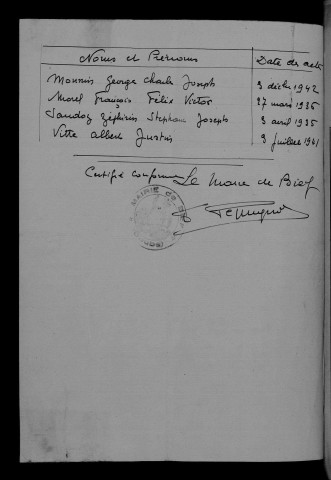 Noms et Prénoms Date des actes
Monnin George Charles Joseph 3 décbre 1942
Morel François Félix Victor 27 mars 1936
Sandoz Zéphirin Stephane Joseph 3 avril 1935
Vitte Albert Justin 9 Juillet 1941
Certifié conforme Le Maire de Bief
MAIRIE DE